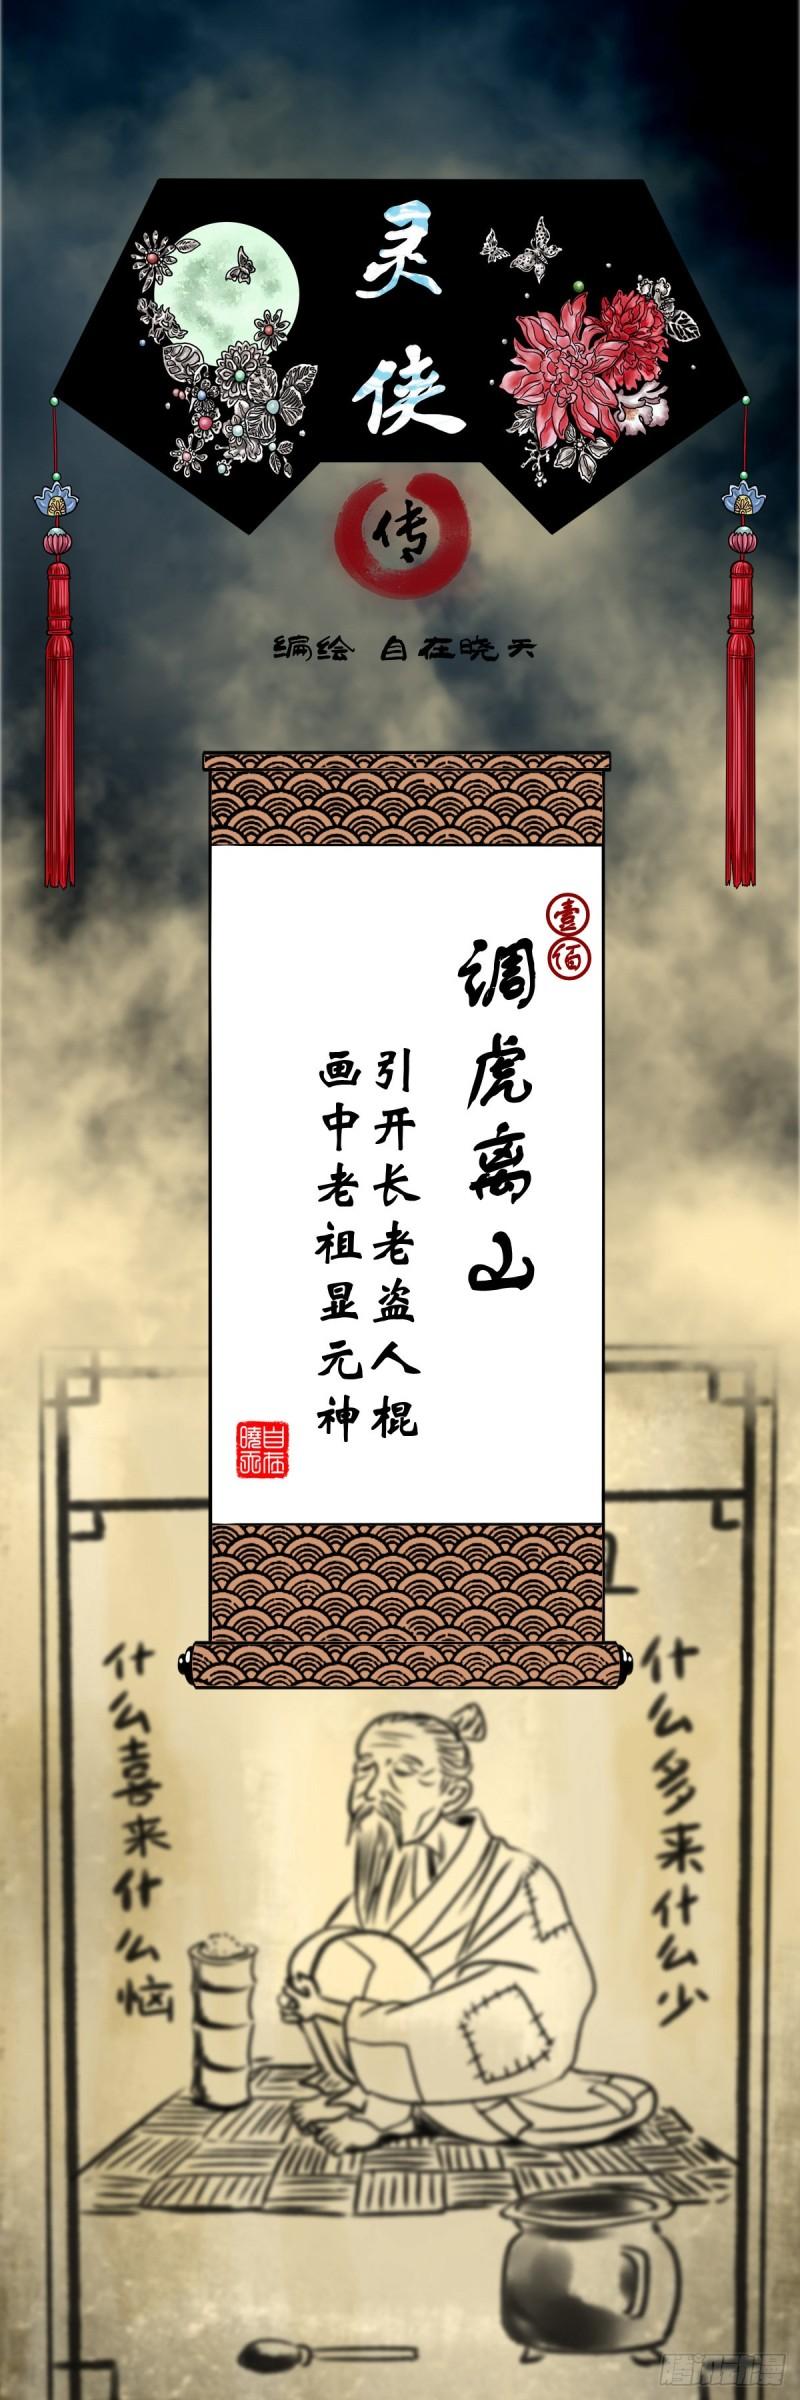 灵侠
传
编绘 自在晓天
壹佰
调虎离山
引开长老盗人棍
画中老祖显元神
自在
曉天
什么多来什么少
什么喜来什么恼
腾讯动漫